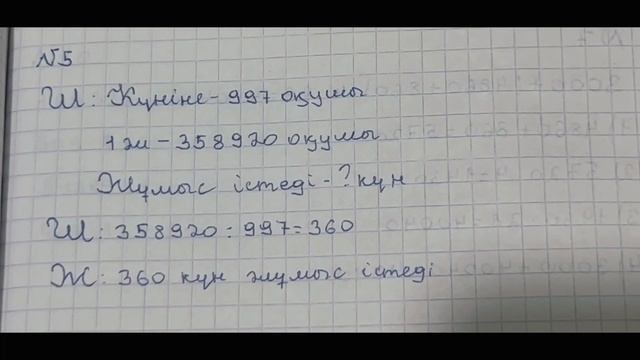 №5
Ш: Күніне - 997 оқушы
1 ж - 358920 оқушы
Жұмыс істеді - ? күн
Ш: 358920 : 997 = 360
Ж: 360 күн жұмыс істеді